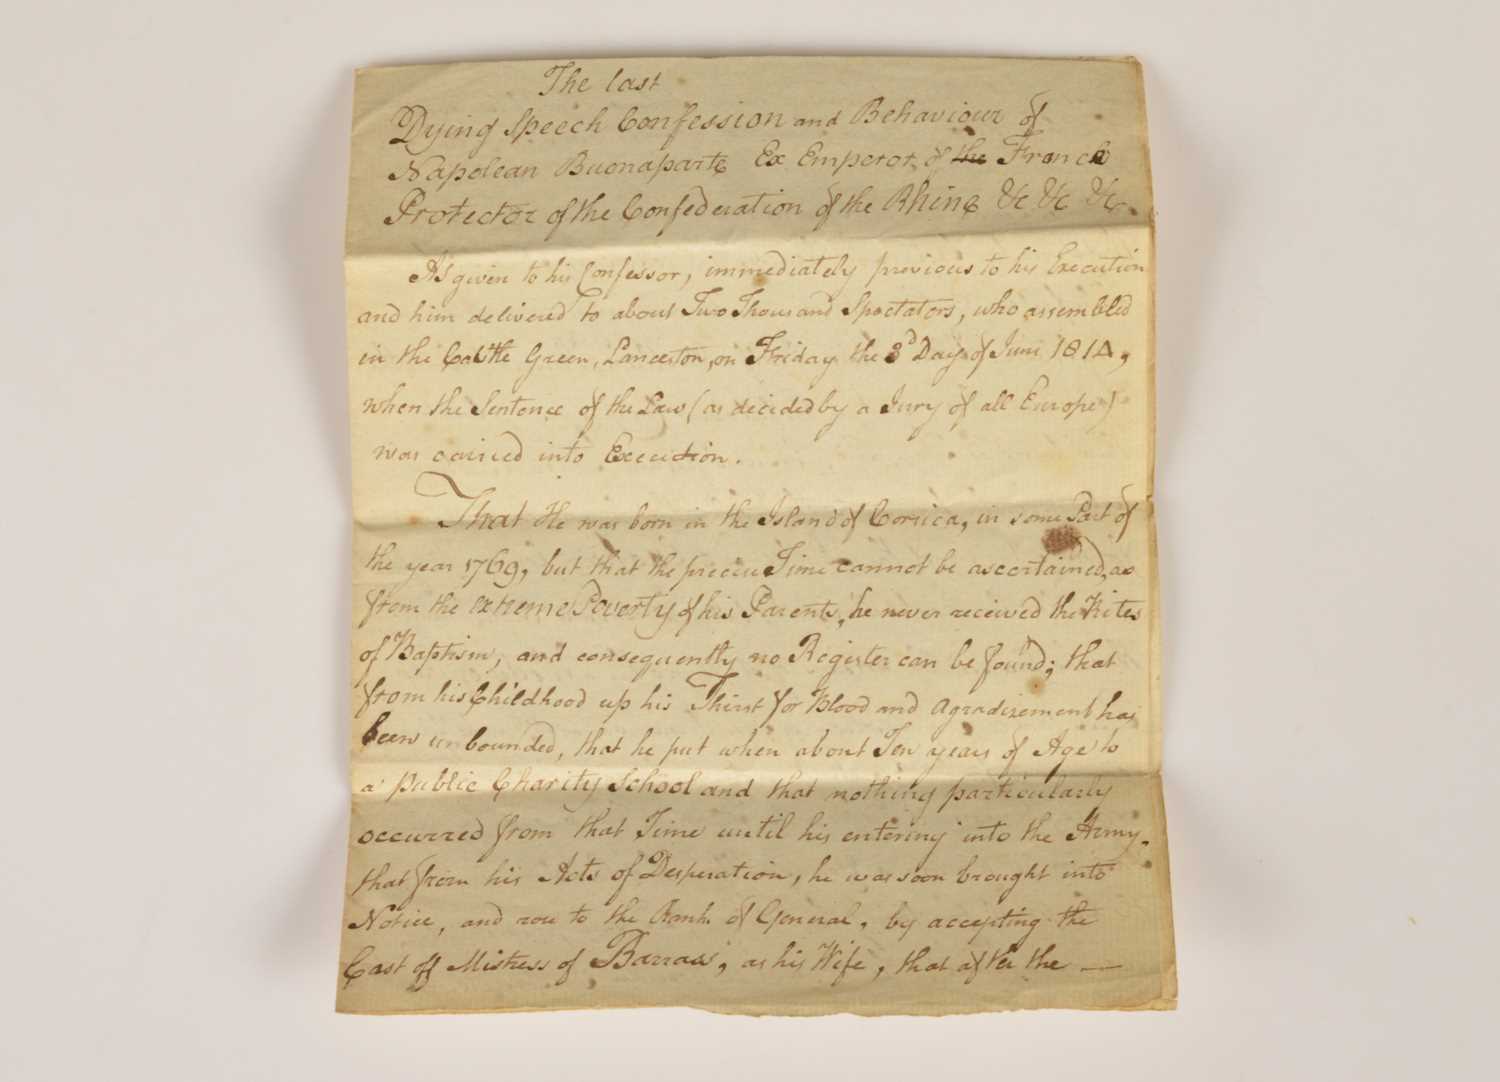 The last
Dying Speech Confession and Behaviour of
Napolean Buonaparte Ex Emperor of the French
Protector of the Confederation of the Rhine &c &c &c.
As given to his Confessor, immediately previous to his Execution
and him delivered to about Two Thousand Spectators, who assembled
in the Castle Green, Lanceston, on Friday the 3d Day of June 1814,
when the Sentence of the Law (as decided by a Jury of all Europe)
was carried into Execution.
That He was born in the Island of Corsica, in some Part of
the year 1769, but that the precise Time cannot be ascertained, as
from the extreme Poverty of his Parents, he never received the Rites
of Baptism, and consequently no Register can be found; that
from his Childhood up his Thirst for Blood and agradisement has
been unbounded, that he put when about Ten years of Age to
a public Charity School and that nothing particularly
occurred from that Time until his entering into the Army.
that from his Acts of Desperation, he was soon brought into
Notice, and rose to the Rank of General, by accepting the
Cast off Mistress of Barras, as his Wife, that after the —